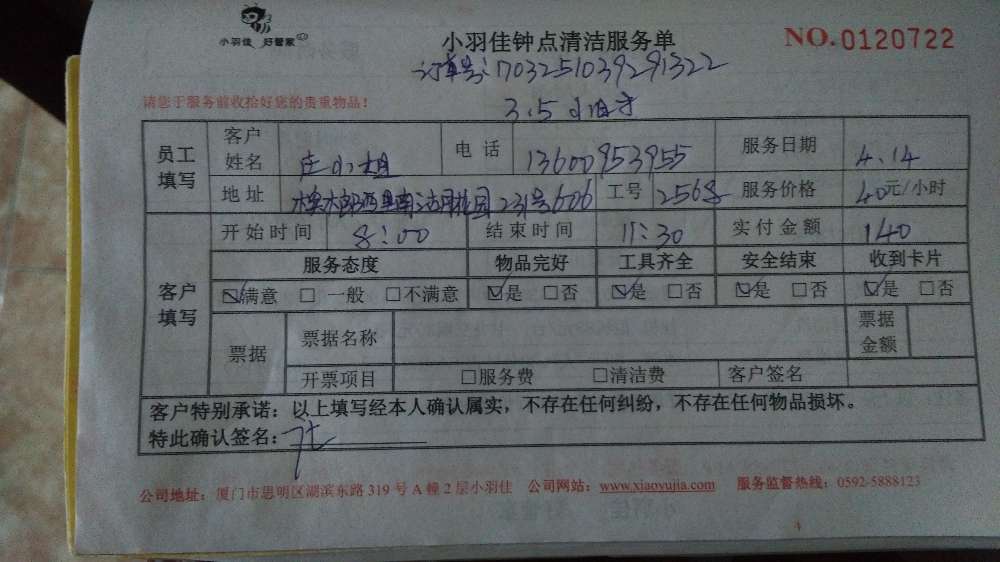 小羽佳 好管家
小羽佳钟点清洁服务单
NO.0120722
订单号:1703251039291322
请您于服务前收拾好您的贵重物品!
3.5小时
员工填写 客户姓名 庄小姐 电话 13600953955 服务日期 4.14
地址 南 花园231号606 工号 2568 服务价格 40元/小时
客户填写 开始时间 8:00 结束时间 11:30 实付金额 140
服务态度 物品完好 工具齐全 安全结束 收到卡片
☑满意 □一般 □不满意 ☑是 □否 ☑是 □否 ☑是 □否 ☑是 □否
票据 票据名称 票据金额
开票项目 □服务费 □清洁费 客户签名
客户特别承诺:以上填写经本人确认属实,不存在任何纠纷,不存在任何物品损坏。
特此确认签名:
公司地址:厦门市思明区湖滨东路319号A幢2层小羽佳 公司网站:www.xiaoyujia.com 服务监督热线:0592-5888123